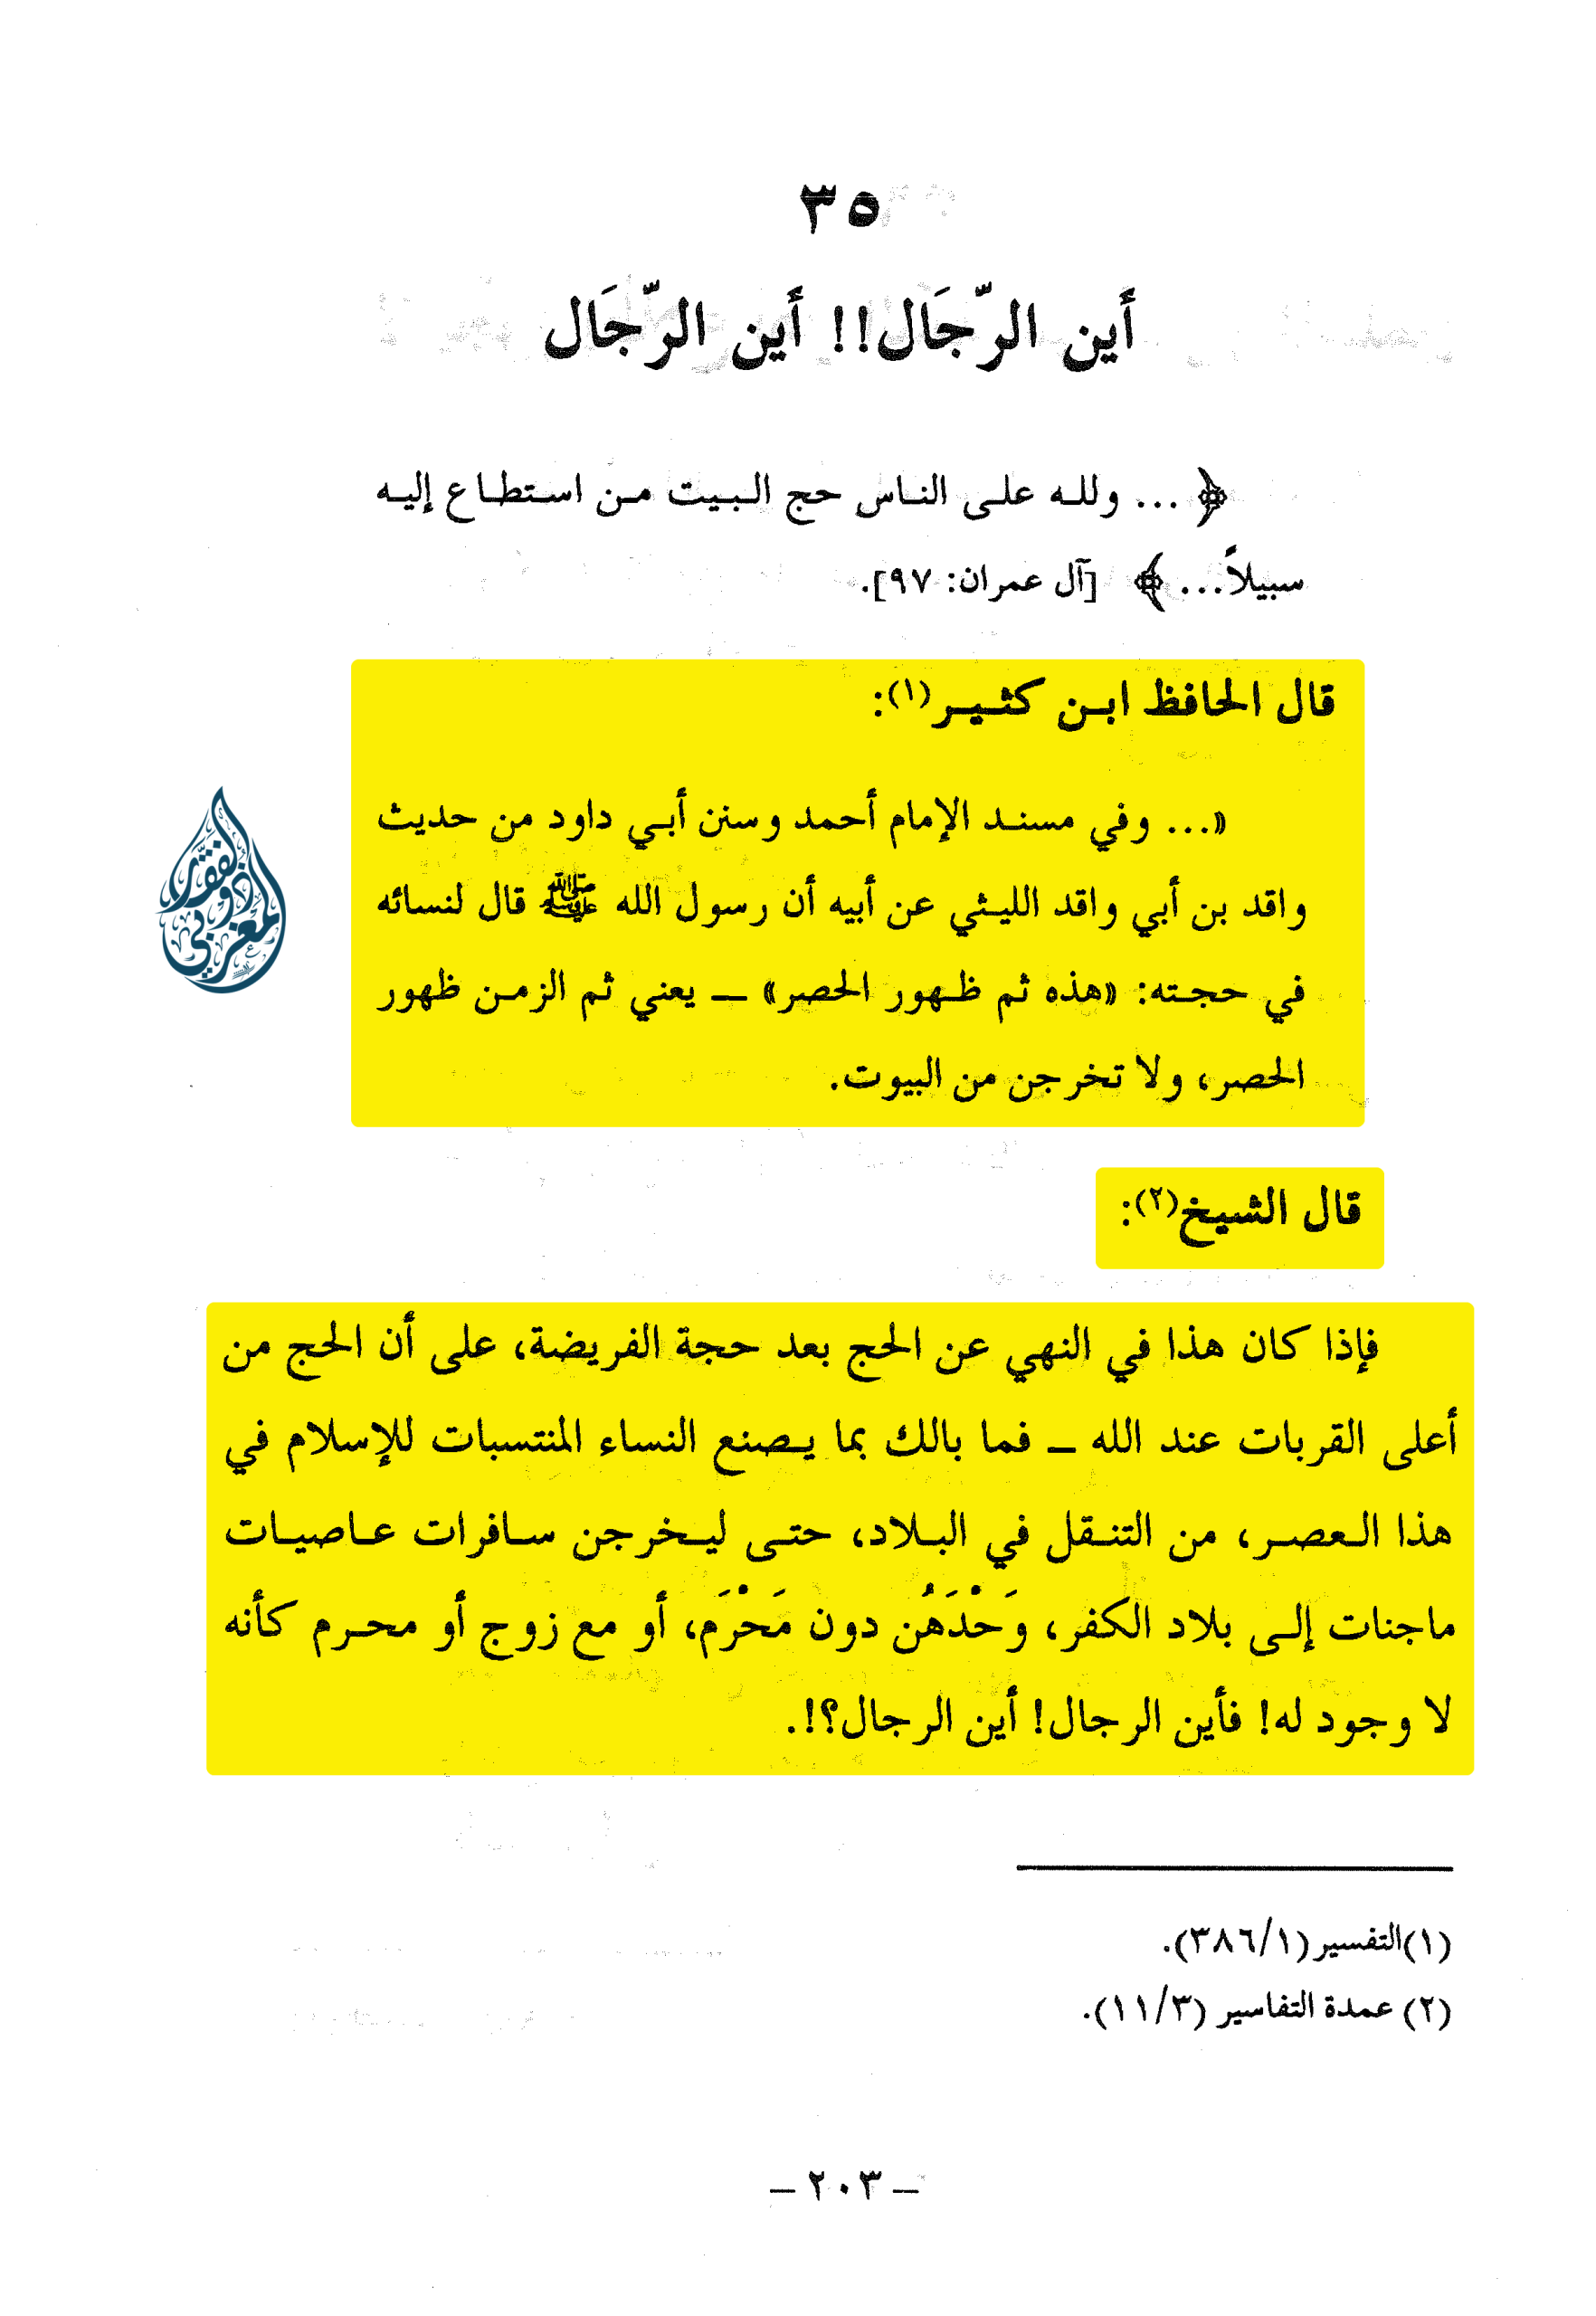 ٣٥
أَين الرِّجَال!! أَين الرِّجَال
﴿ ... ولله على الناس حج البيت من استطاع إليه
سبيلاً... ﴾ [آل عمران: ٩٧].
قال الحافظ ابن كثير(١):
«... وفي مسند الإمام أحمد وسنن أبي داود من حديث
واقد بن أبي واقد الليثي عن أبيه أن رسول الله ﷺ قال لنسائه
في حجته: «هذه ثم ظهور الحصر» ــ يعني ثم الزمن ظهور
الحصر، ولا تخرجن من البيوت.
ذو الفقار
المغربي
قال الشيخ(٢):
فإذا كان هذا في النهي عن الحج بعد حجة الفريضة، على أن الحج من
أعلى القربات عند الله ــ فما بالك بما يصنع النساء المنتسبات للإسلام في
هذا العصر، من التنقل في البلاد، حتى ليخرجن سافرات عاصيات
ماجنات إلى بلاد الكفر، وَحْدَهُن دون مَحْرَم، أو مع زوج أو محرم كأنه
لا وجود له! فأين الرجال! أين الرجال؟!.
(١)التفسير (٣٨٦/١).
(٢) عمدة التفاسير (١١/٣).
ــ ٢٠٣ ــ